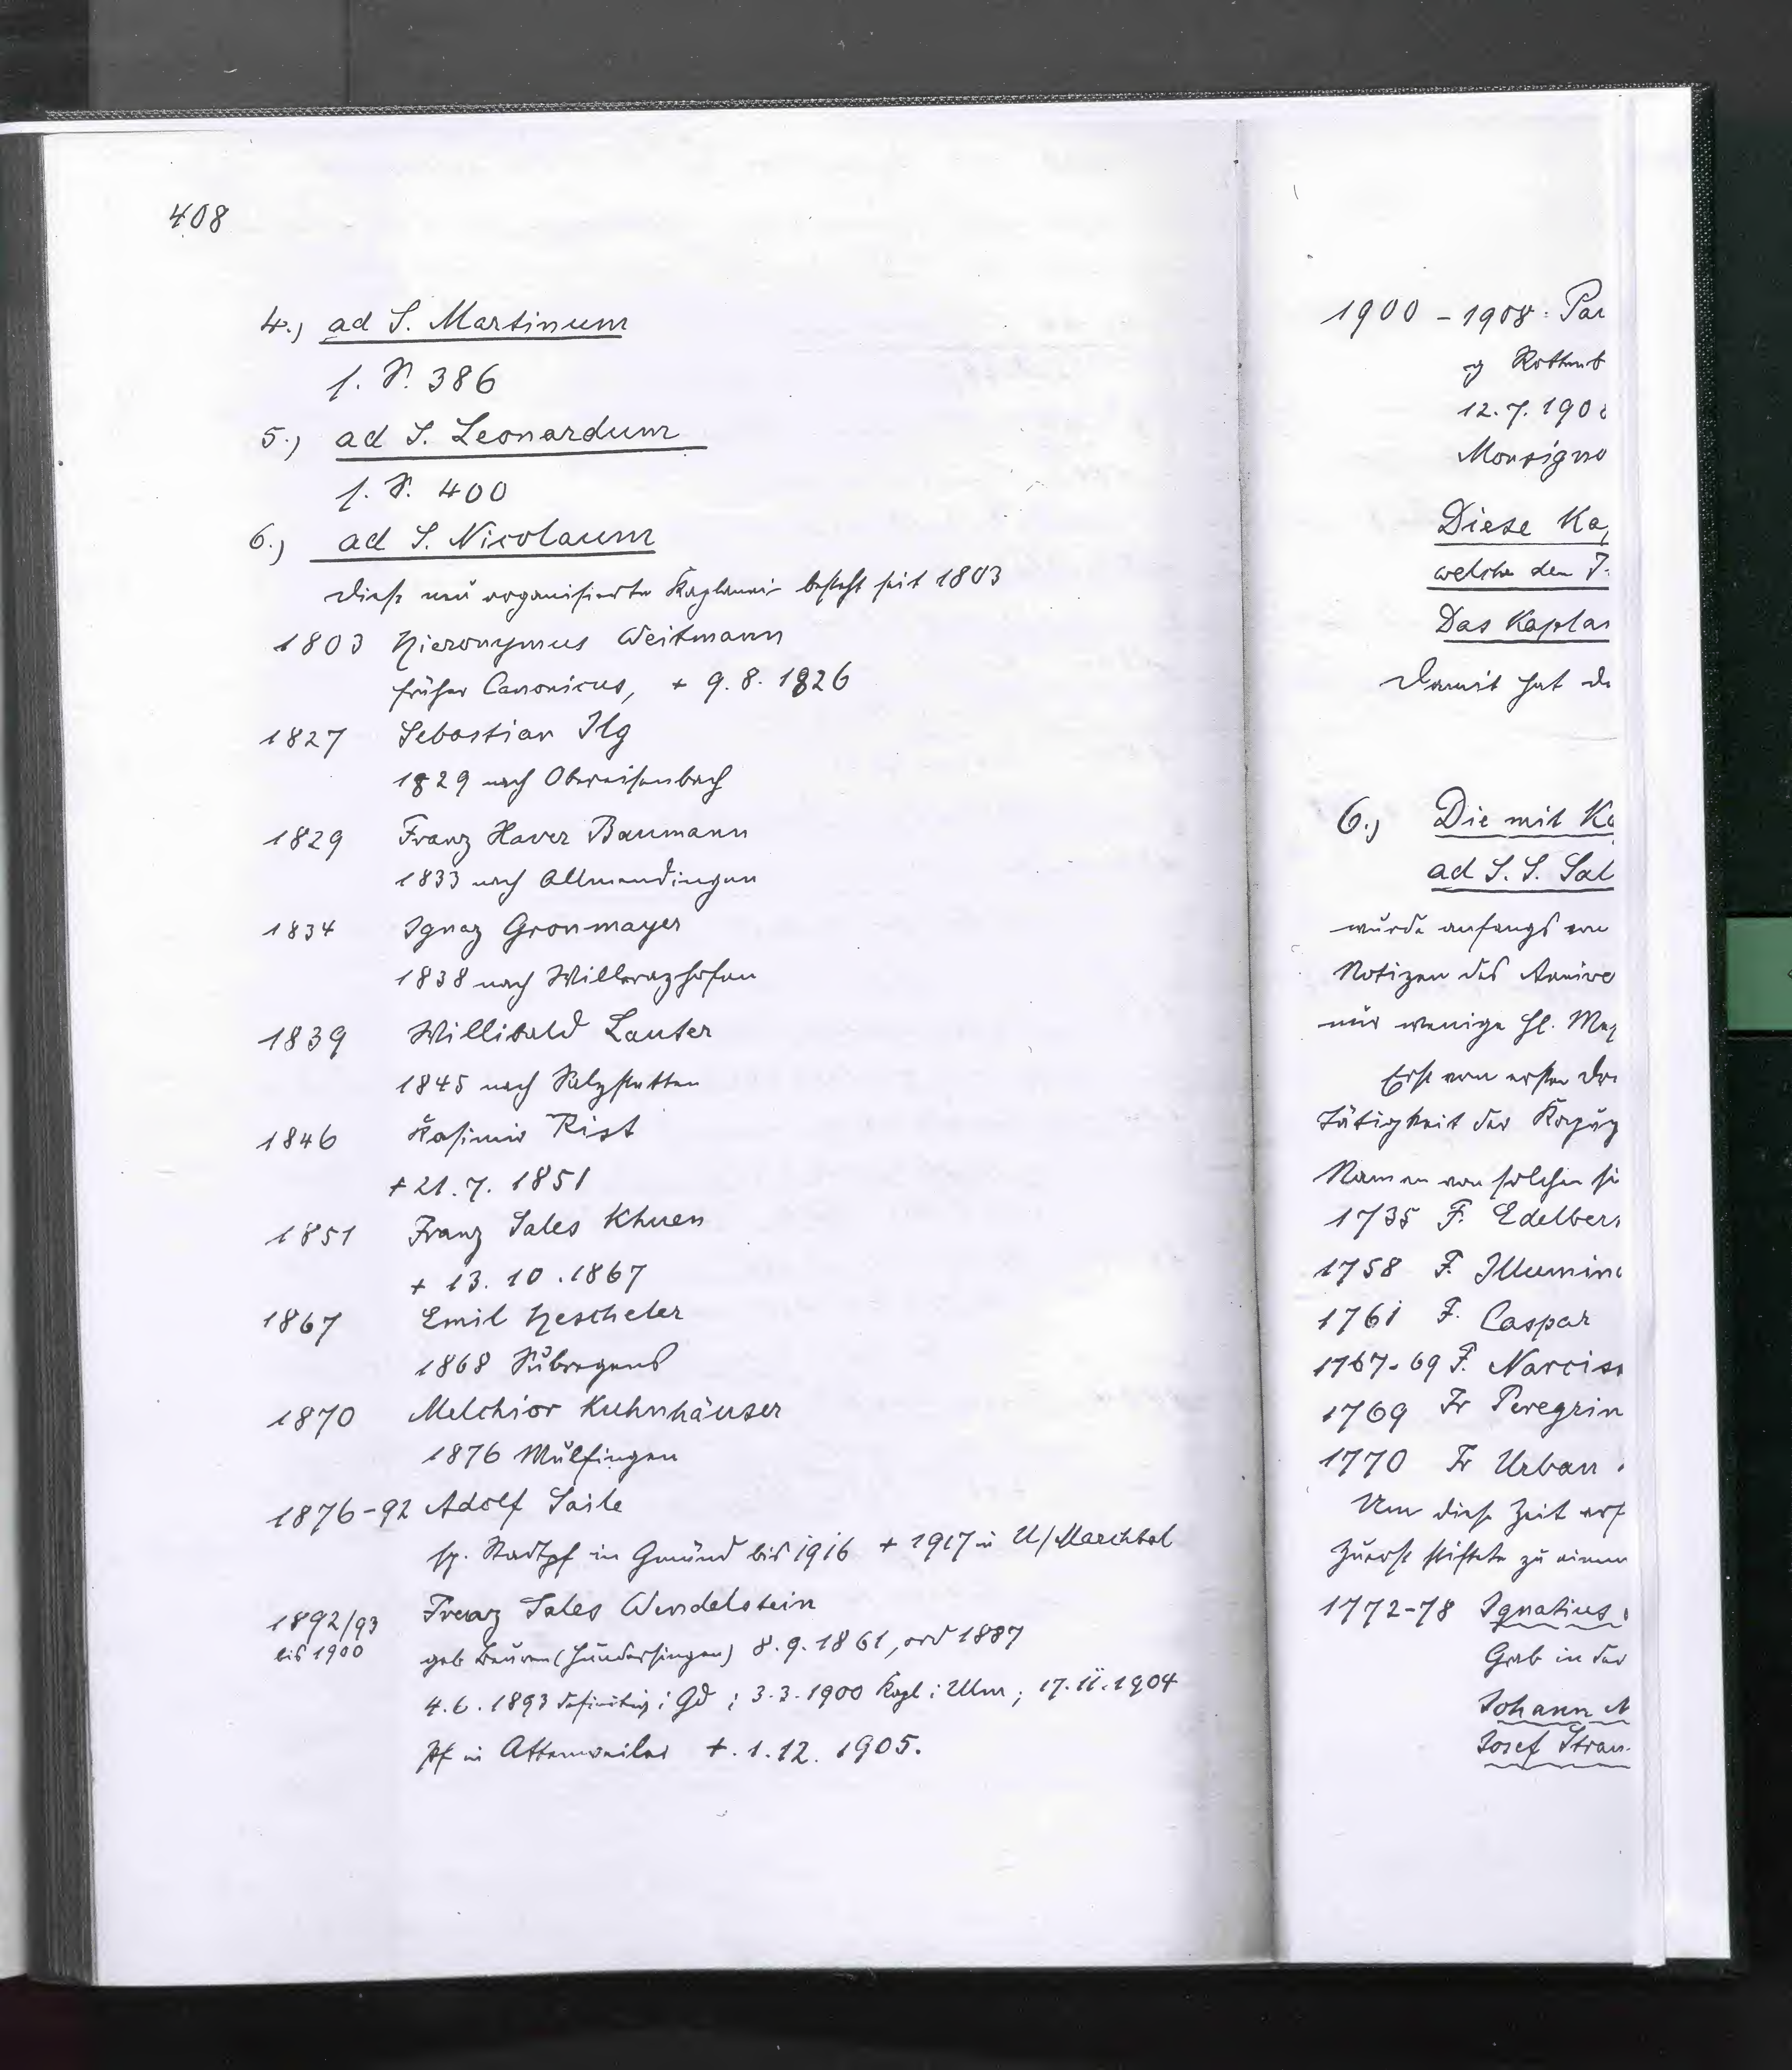 408
4.) ad S. Martinum
s. S. 386
5.) ad S. Leonardum
s. S. 400
6.) ad S. Nicolaum
Diese neu organisierte Kaplanei besteht seit 1803
1803 Hieronymus Weitmann
früher Canonicus, + 9. 8. 1826
1827 Sebastian Ilg
1829 nach Obereisenbach
1829 Franz Xaver Baumann
1833 nach Allmendingen
1834 Ignaz Gronmayer
1838 nach Willerazhofen
1839 Willibald Lauter
1845 nach Salzstetten
1846 Kasimir Rist
+ 21. 7. 1851
1851 Franz Sales Khuen
+ 13. 10. 1867
1867 Emil Hescheler
1868 Subregens
1870 Melchior Kuhnhäuser
1876 Mulfingen
1876-92 Adolf Saile
sp. Stadtpf in Gmünd bis 1916 + 1917 in U/Marchtal
1892/93 Franz Sales Wendelstein
bis 1900 geb Beuren (Hundersingen) 8. 9. 1861, ord 1887
4. 6. 1893 definitiv i Gd ; 3. 3. 1900 Kapl i Ulm ; 17. 11. 1904
Pf in Attenweiler +. 1. 12. 1905.
1900 - 1908: Par
Rottenb
12. 7. 190
Monsigno
Diese Ka
welche den
Das Kaplan
Damit hat de
6.) Die mit Ka
ad S. S. Sal
wurde anfangs von
Notizen des Anive
nur wenige hl. Mes
Erst vom ersten Dri
Tätigkeit der Kapuz
Namen von solchen si
1735 F. Edelber
1758 F. Illumin
1761 F. Caspar
1767-69 F. Narciss
1769 Fr Peregrin
1770 Fr Urban
Um diese Zeit erf
Zuerst stiftete zu einem
1772-78 Ignatius
Grab in der
Johann N
Josef Strau